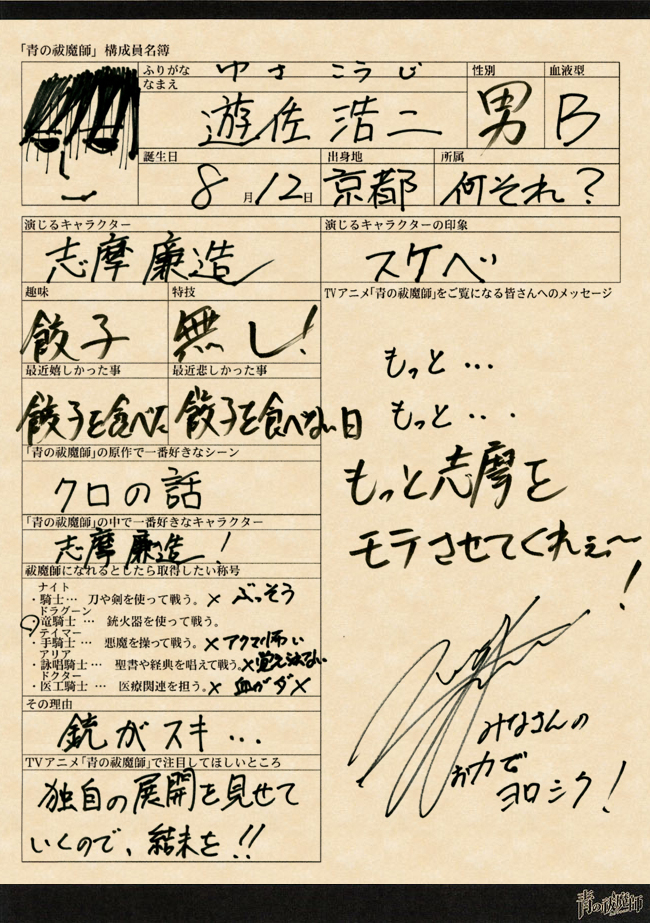 「青の祓魔師」構成員名簿
ふりがな ゆさ こうじ
なまえ 遊佐浩二
性別 男
血液型 B
誕生日 8月12日
出身地 京都
所属 何それ?
演じるキャラクター
志摩廉造
演じるキャラクターの印象
スケベ
趣味
餃子
特技
無し!
最近嬉しかった事
餃子を食べた
最近悲しかった事
餃子を食べない日
「青の祓魔師」の原作で一番好きなシーン
クロの話
「青の祓魔師」の中で一番好きなキャラクター
志摩廉造!
祓魔師になれるとしたら取得したい称号
ナイト
・騎士… 刀や剣を使って戦う。× ぶっそう
ドラグーン
・竜騎士… 銃火器を使って戦う。
テイマー
・手騎士… 悪魔を操って戦う。×アクマ怖い
アリア
・詠唱騎士… 聖書や経典を唱えて戦う。×覚えられない
ドクター
・医工騎士… 医療関連を担う。× 血がダメ
その理由
銃がスキ…
TVアニメ「青の祓魔師」で注目してほしいところ
独自の展開を見せて
いくので、結末を!!
TVアニメ「青の祓魔師」をご覧になる皆さんへのメッセージ
もっと…
もっと…
もっと志摩を
モテさせてくれぇ〜!
みなさんの
お力で
ヨロシク!
青の祓魔師